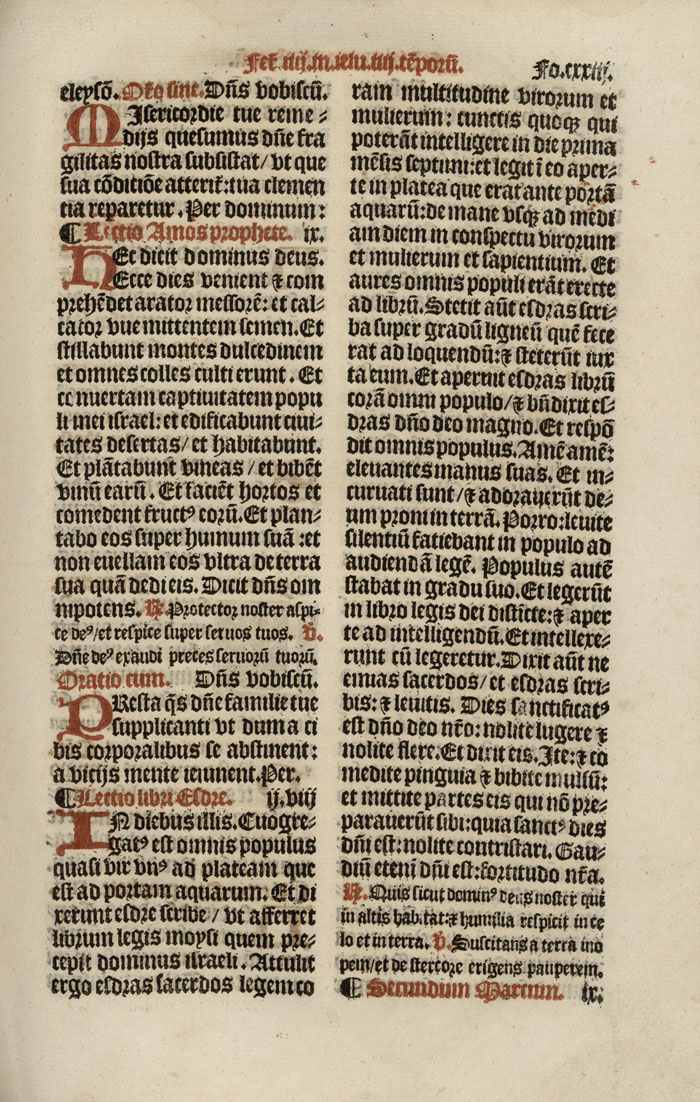 Fer̃ iiij.in.ieiu.iiij.tẽporũ.
Fo.cxxiij.
eleysõ. Orõ sine. Dñs vobiscũ.
MIsericordie tue reme⸗
dijs quesumus dñe fra
gilitas nostra subsistat/ vt que
sua cõditiõe atterit̃: tua clemen
tia reparetur. Per dominum:
¶ Lectio Amos prophete. ix.
HEc dicit dominus deus.
Ecce dies venient ⁊ com
prehẽdet arator messorẽ: et cal⸗
cator vue mittentem semen. Et
stillabunt montes dulcedinem
et omnes colles culti erunt. Et
cõuertam captiuitatem popu
li mei israel: et edificabunt ciui⸗
tates desertas/ et habitabunt.
Et plãtabunt vineas/ et bibẽt
vinũ earũ. Et faciẽt hortos et
comedent fructꝰ eorũ. Et plan⸗
tabo eos super humum suã: et
non euellam eos vltra de terra
sua quã dedi eis. Dicit dñs om
nipotens. ℟. Protector noster aspi⸗
ce deꝰ/ et respice super seruos tuos. ℣.
Dñe deꝰ exaudi preces seruorũ tuorũ.
Oratio cum. Dñs vobiscũ.
PResta q̃s dñe familie tue
supplicanti vt dum a ci
bis corporalibus se abstinent:
a vicijs mente ieiunent. Per.
¶ Lectio libri Esdre. ij.viij
IN diebus illis. Cõgre⸗
gatꝰ est omnis populus
quasi vir vnꝰ ad plateam que
est ad portam aquarum. Et di
xerunt esdre scribe/ vt afferret
librum legis moysi quem pre⸗
cepit dominus israeli. Attulit
ergo esdras sacerdos legem co
ram multitudine virorum et
mulierum: cunctis quoqꝫ qui
poterãt intelligere in die prima
mẽsis septimi: et legit ĩ eo aper⸗
te in platea que erat ante portã
aquarũ: de mane vsqꝫ ad medi
am diem in conspectu virorum
et mulierum et sapientium. Et
aures omnis populi erãt erecte
ad librũ. Stetit aũt esdras scri⸗
ba super gradũ ligneũ quẽ fece
rat ad loquendũ: ⁊ steterũt iux
ta eum. Et aperuit esdras librũ
corã omni populo/ ⁊ bñdixit es⸗
dras dño deo magno. Et respõ
dit omnis populus. Amẽ amẽ:
eleuantes manus suas. Et in⸗
curuati sunt/ ⁊ adorauerũt de⸗
um proni in terrã. Porro: leuite
silentiũ faciebant in populo ad
audiendã legẽ. Populus autẽ
stabat in gradu suo. Et legerũt
in libro legis dei distĩcte: ⁊ aper
te ad intelligendũ. Et intellexe⸗
runt cũ legeretur. Dixit aũt ne
emias sacerdos/ et esdras scri⸗
bis: ⁊ leuitis. Dies sanctificatꝰ
est dño deo nr̃o: nolite lugere ⁊
nolite flere. Et dixit eis. Ite: ⁊ cõ
medite pinguia ⁊ bibite mulsũ:
et mittite partes eis qui nõ pre⸗
parauerũt sibi: quia sanctꝰ dies
dñi est: nolite contristari. Gau⸗
diũ eteni dñi est: fortitudo nr̃a.
℟. Quis sicut dominꝰ deus noster qui
in altis habitat: ⁊ humilia respicit in ce
lo et in terra. ℣. Suscitans a terra ino
pem/ et de stercore erigens pauperem.
¶ Secundum Marcum. ix: